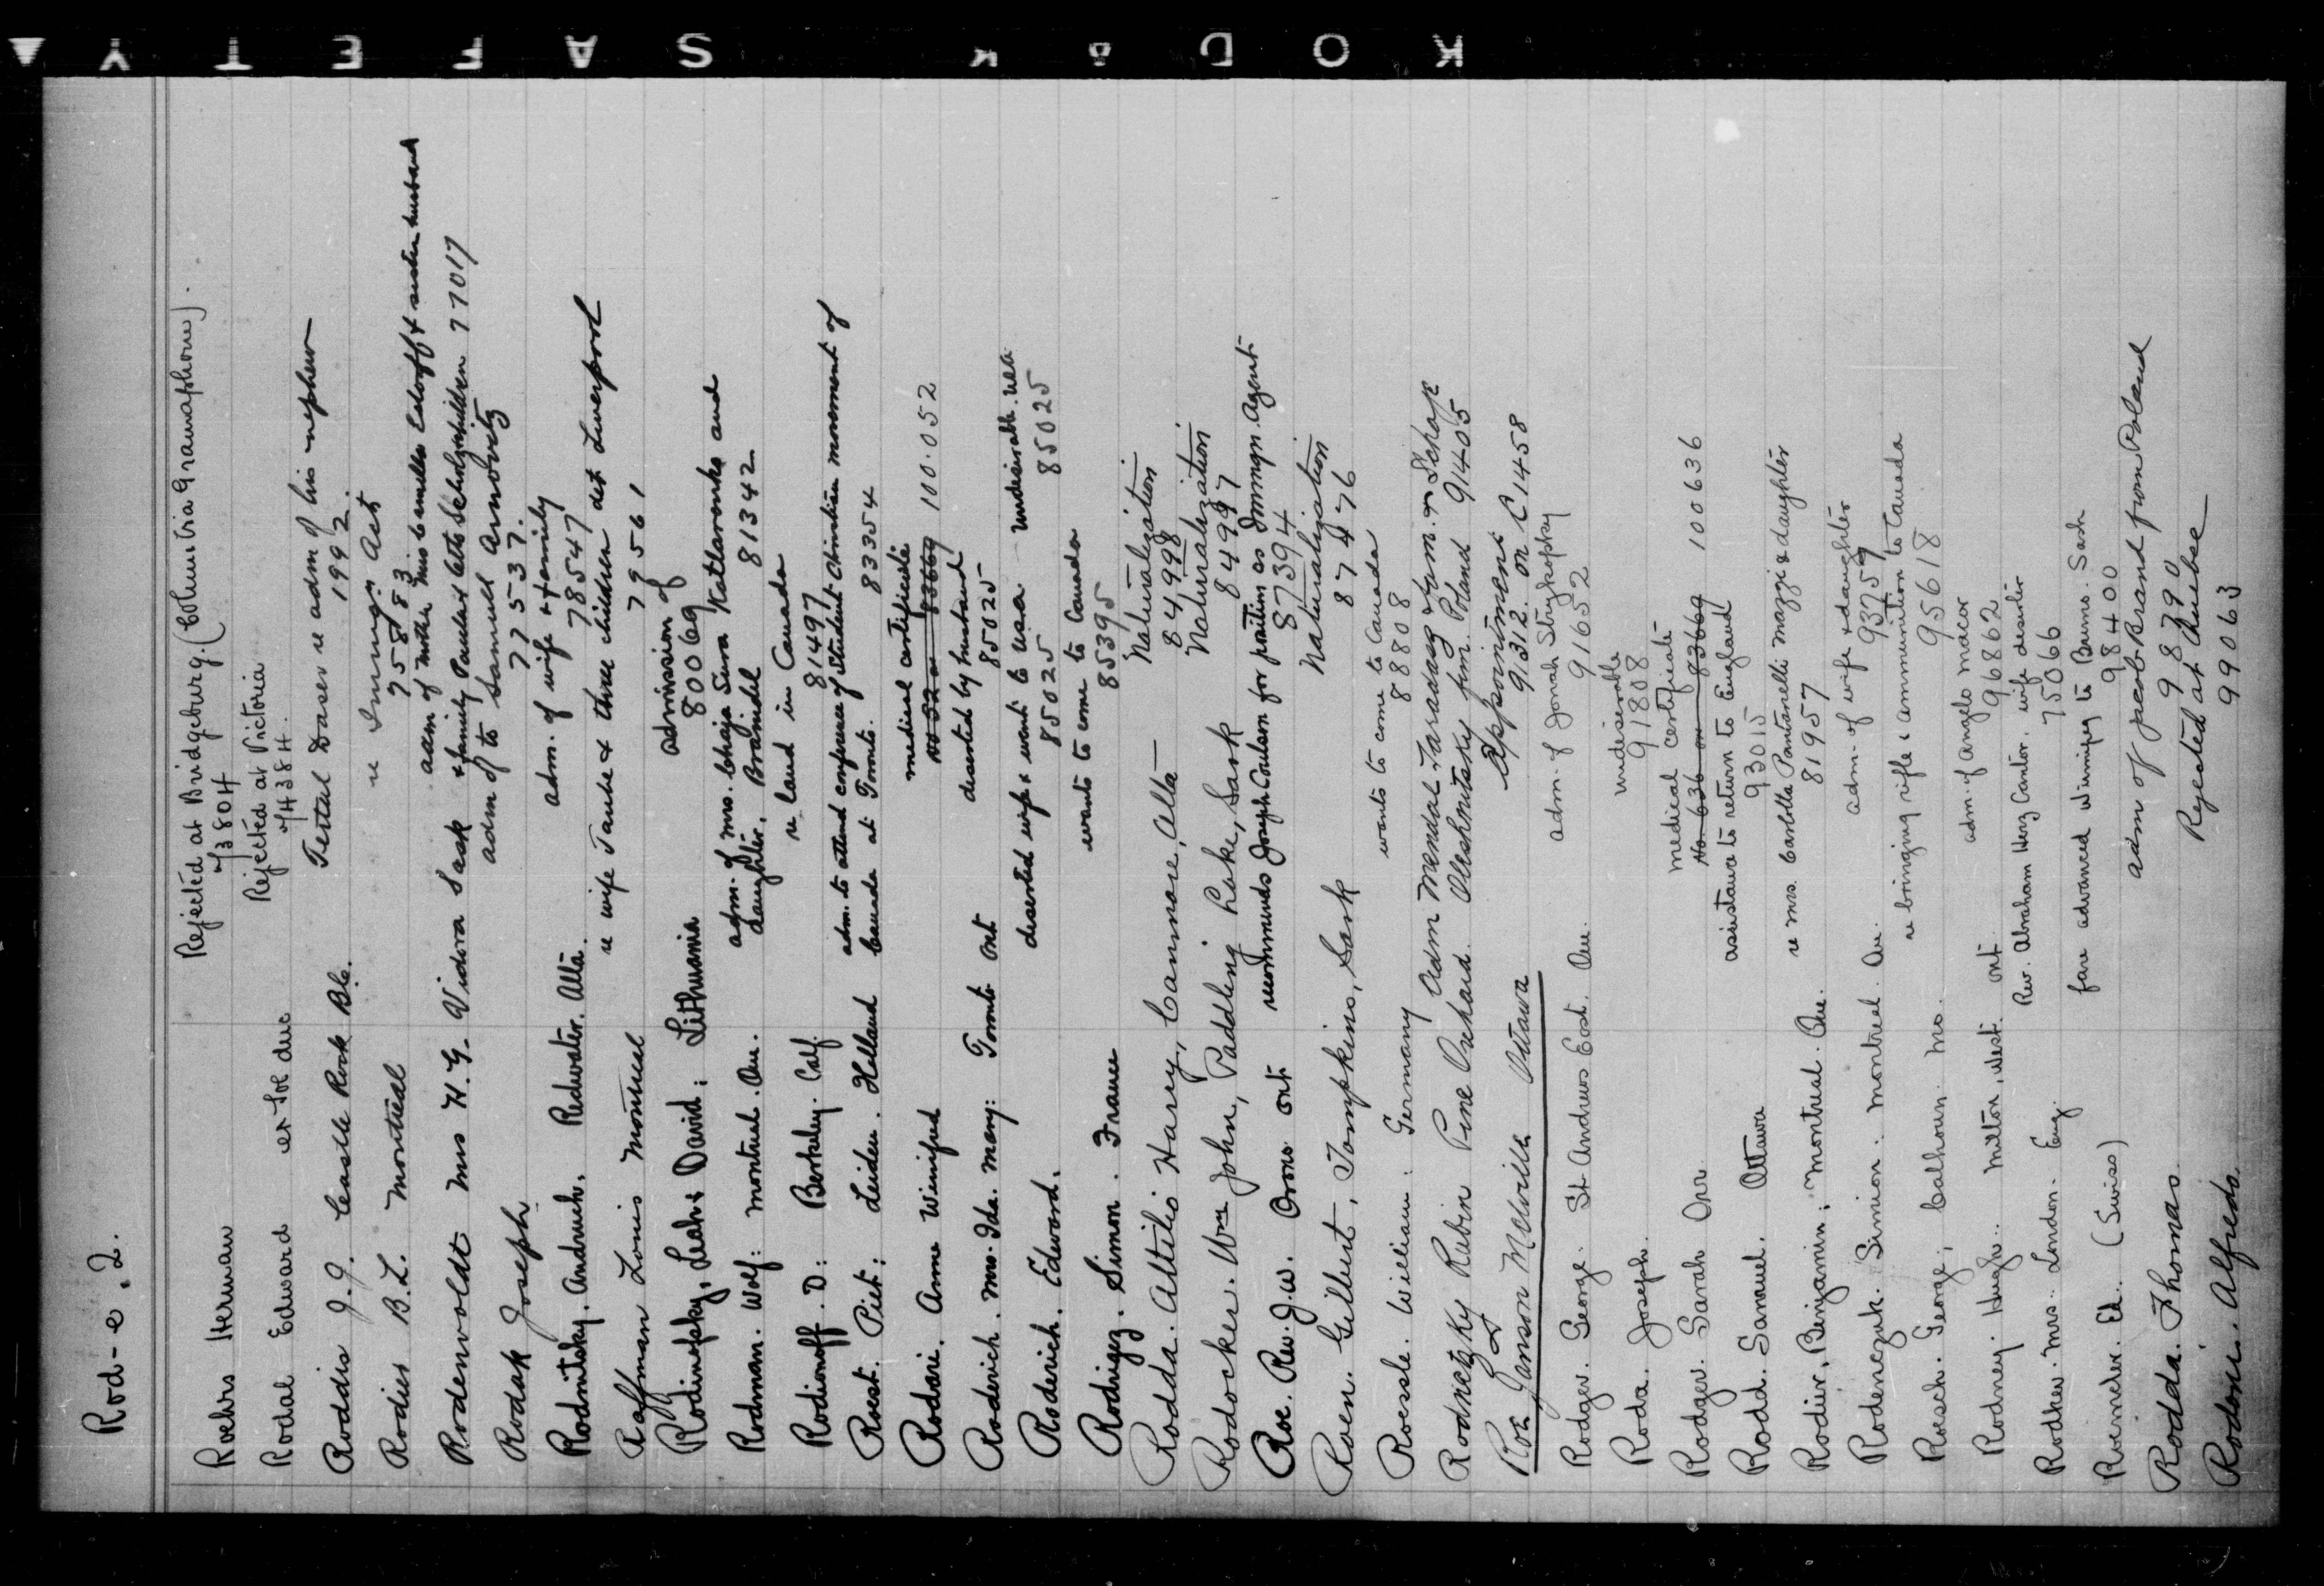 Rod-e. 2.
Roehrs Herman
Rejected at Bridgeburg. (Columbia Gramaphone).
Rodal Edward
Rejected at Victoria
Roddis J.J. Castle Rock B.C.
Tertal Daser re adm of his nephew
1992.
Rodier B.L. Montreal
re Immgn Act
75883
Rodenvoldt Mrs H. G. Vidora Sask
adm of mother Miss Camilla & sister husband
& family Paula & Otto children 77017
Rodak Joseph
adm of to Samuel Arnovitz
77537.
Rodnitsky. Andruch. Redwater. Alta.
adm. of wife & family
78547
Raffman Louis Montreal
re wife Taube & three children det Liverpool
79561
Rodinofsky, Leah & David: Lithuania
admission of
80069
Rodman. Wolf: Montreal. Que.
adm. of Mrs. Chaja Sura and
daughter. Braindel 81342
Rodionoff. D: Berkeley. Calf
re land in Canada
81497
Roest. Piet: Leiden. Holland
adm. to attend conference of Student Christian movement of
Canada at Toronto. 83354
Rodari. Anne Winifred
medical certificate
100.052
Roderich. Mrs. Ida. Mary: Toronto Ont
deserted by husband
85025
Roderich. Edward.
deserted wife & wants to USA undesirable.
85025 85025
Rodrigez. Simon. France
wants to come to Canada
85395
Rodda. Attilio Harry, Canmore, Alta
Naturalization
84998
Rodocker. Wm John, Paddling Lake, Sask
Naturalization
84997
Roe. Rev. J.W. Orono Ont
recommends Joseph Coulson for position as Immgn. Agent
87394
Roen. Gilbert, Tompkins, Sask
Naturalization
87476
Roessle. William: Germany
wants to come to Canada
88808
Rodnetzky Rubin Pine Orchard.
Adm Mendal Faradasz & fam. or Schaje
Oleshnitsky fam. Poland 91405
Roe Janson Melville Ottawa
Appointment
91312 on C1458
Rodger. George. St Andrews East. Que.
adm. of Jonah Strykofsky
91652
Roda. Joseph.
undesirable
91808
Rodger. Sarah Orr
medical certificate
No 636 on 83669 100636
Rodd. Samuel. Ottawa
assistance to return to England
93015
Rodier, Benjamin; Montreal. Que.
re Mrs. Carlotta Pantanelli Mazzi & daughter
81957
Rodenczuk. Simion. Montreal. Que.
adm. of wife & daughter
93759
Roesch. George; Calhoun. Mo.
re bringing rifle & ammunition to Canada
95618
Rodney. Hugh. Milton, West. Ont
adm. of Angelo Macor
96862
Rodker. Mrs. London. Eng.
Rev. Abraham Herz Cantor. wife deserter
75066
Roeineker. Ed. (Swiss)
fare advanced Winnipeg to Sask
98400
Rodda. Thomas
adm of Jacob Brand from Poland
98790
Rodoni. Alfredo
Rejected at Quebec
99063
KODAK SAFETY